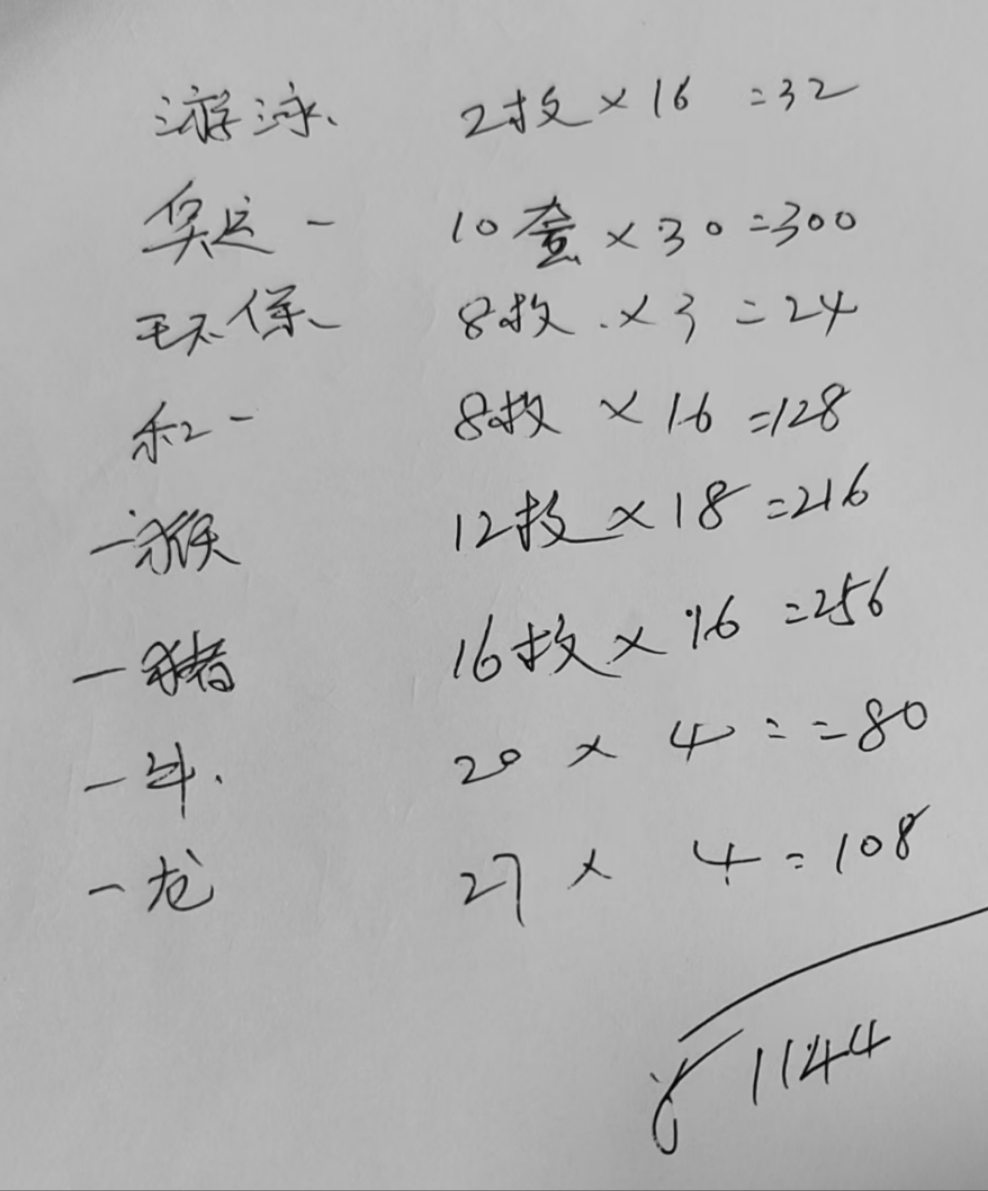 游泳、 2枚×16=32
奥运- 10套×30=300
环保、 8枚.×3=24
和一 8枚×16=128
一猴 12枚×18=216
一猪 16枚×16=256
一牛. 20×4==80
一龙 27×4=108
1144